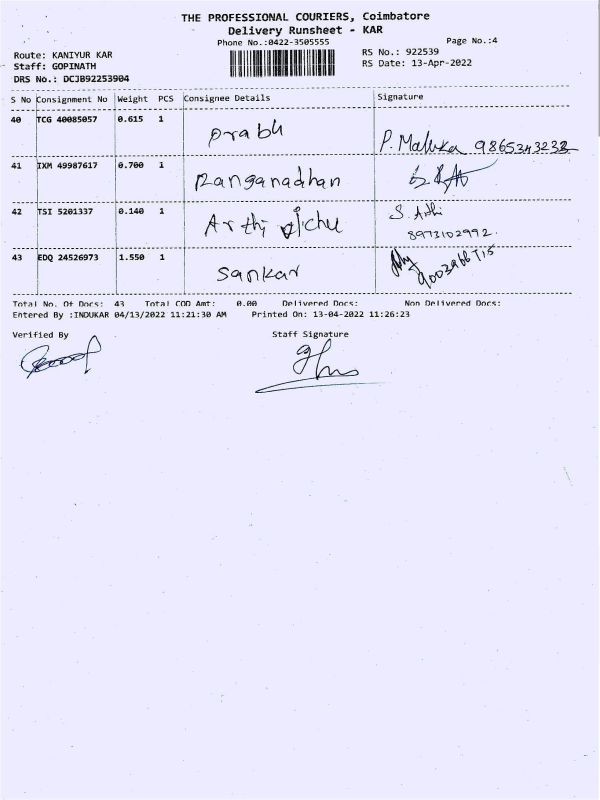 THE PROFESSIONAL COURIERS, Coimbatore
Delivery Runsheet - KAR
Phone No.:0422-3505555
Page No.:4
Route: KANIYUR KAR
RS No.: 922539
Staff: GOPINATH
RS Date: 13-Apr-2022
DRS No.: DCJB92253904
S No Consignment No Weight PCS Consignee Details Signature
40 TCG 40085057 0.615 1 Prabu P. Malika 9865343232
41 IXM 49987617 0.700 1 Ranganadhan
42 TSI 5201337 0.140 1 Arthi vichu S. Arthi
8973102992.
43 EDQ 24526973 1.550 1 Sankar
Total No. Of Docs: 43 Total COD Amt: 0.00 Delivered Docs: Non Delivered Docs:
Entered By :INDUKAR 04/13/2022 11:21:30 AM Printed On: 13-04-2022 11:26:23
Verified By Staff Signature